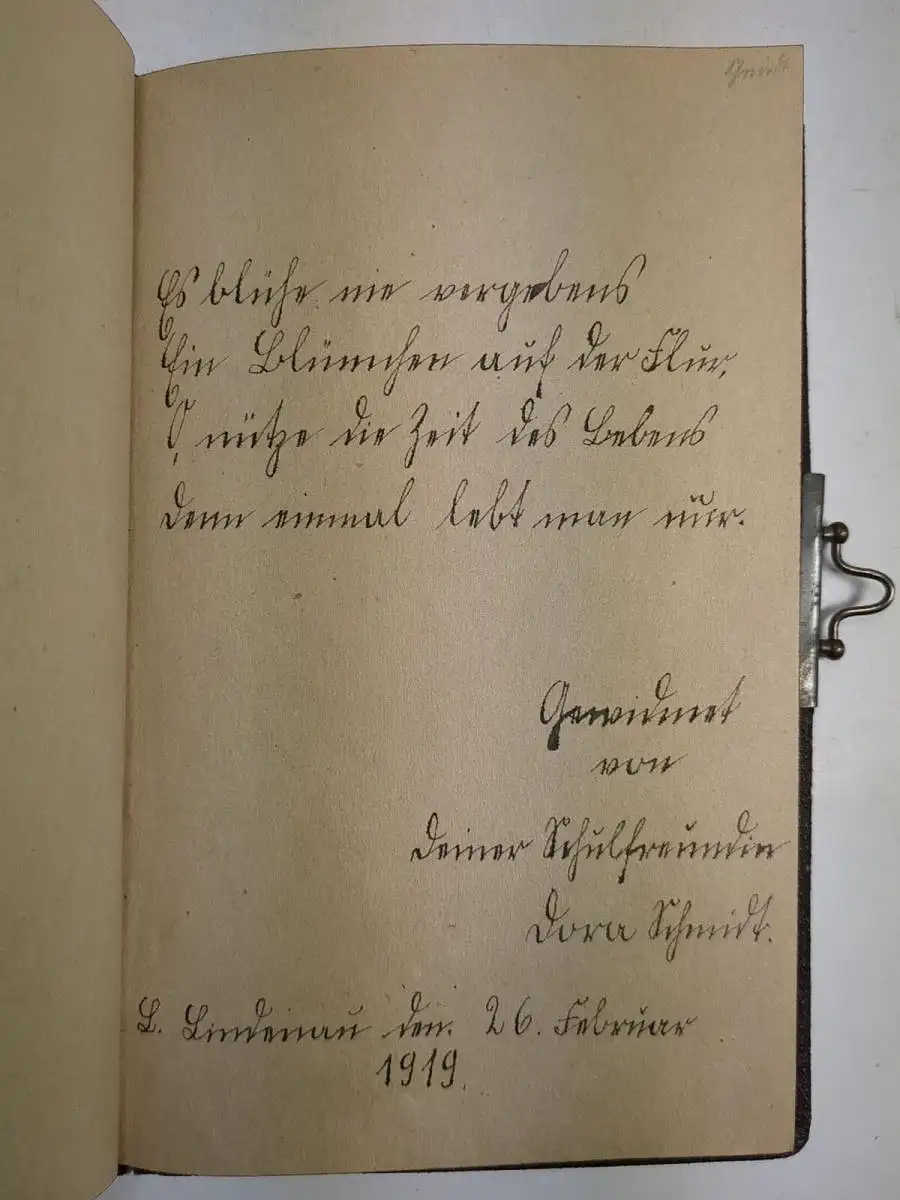 Schmidt
Es blühe nie vergebens
Ein Blümchen auf der Flur,
O, nütze die Zeit des Lebens
denn einmal lebt man nur.
Gewidmet
von
Deiner Schulfreundin
Dora Schmidt.
L. Lindenau den. 26. Februar
1919.